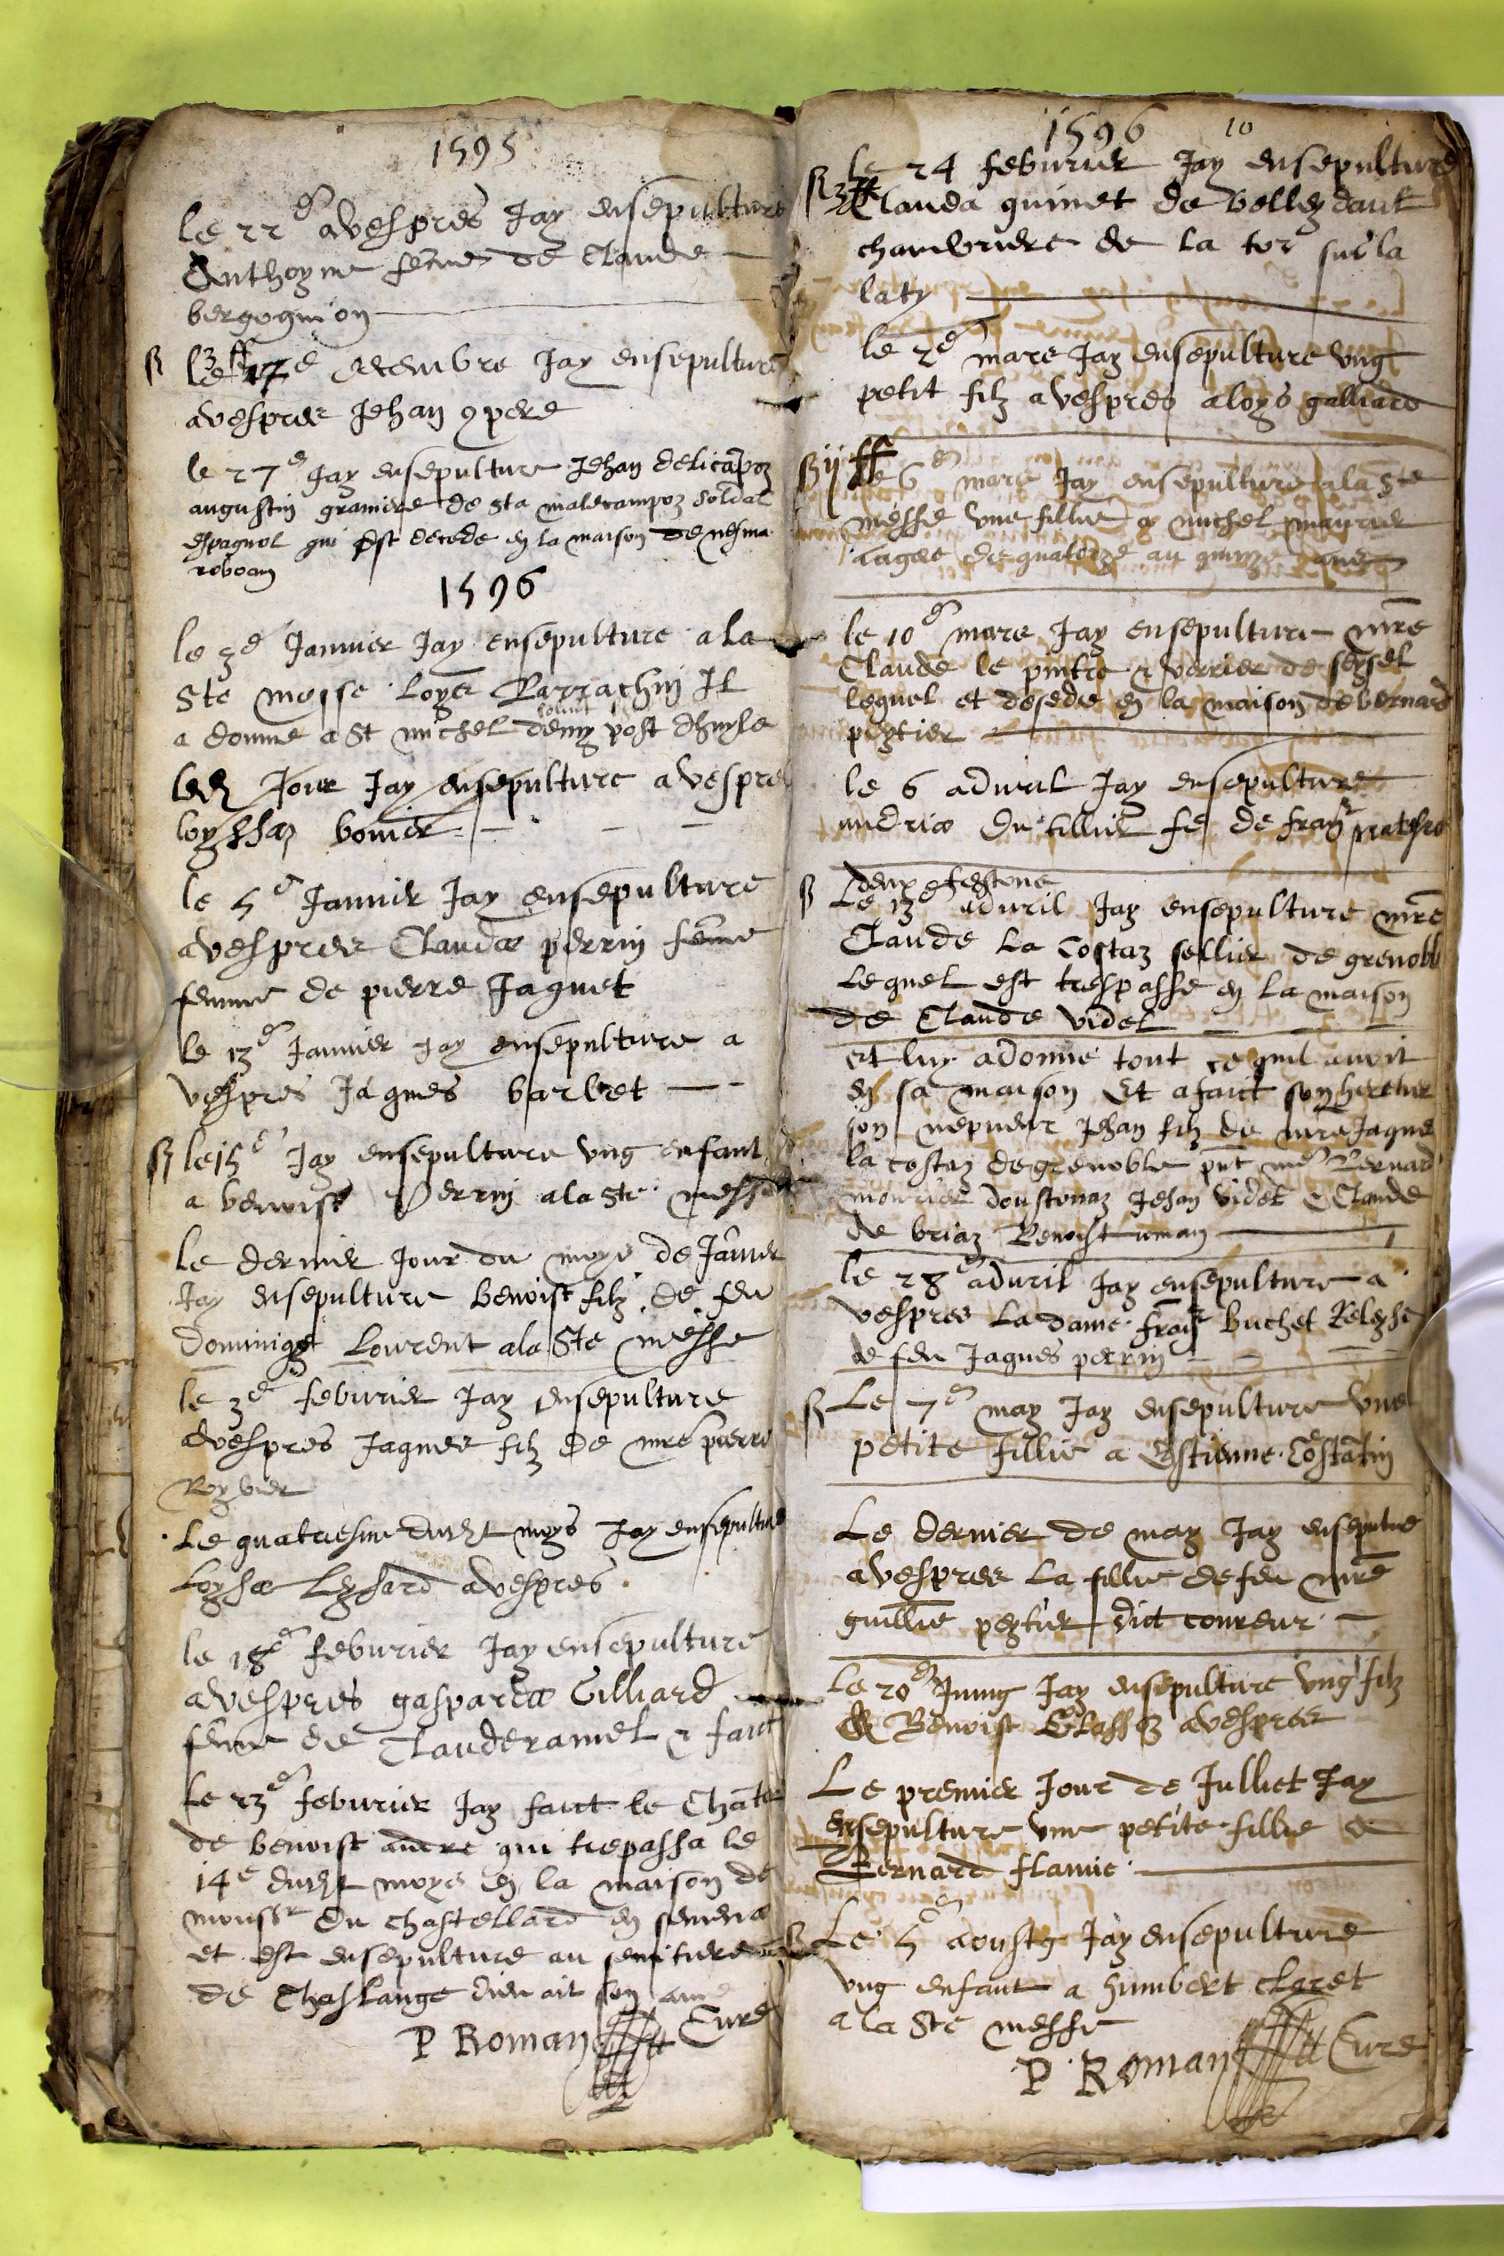 1595
le 22e a vespres Jay ensepulture
Anthoyne feme de Claude
bergognion
le 17e decembre Jay ensepulture
a vespres Jehan
le 27e Jay ensepulture Jehan
augustin de Sta soldat
espagnol qui est decede en la maison de
1596
le 3e Janvier Jay ensepulture a la
Ste messe loyer Barrachin Il
a donne a St michel demy post dhuyle
led Jour Jay ensepulture a vespres
loyssaz bovier
le 5e Janvier Jay ensepulture
a vespres Clauda perrin feme
femme de pierre Jaquet
le 13e Janvier Jay ensepulture a
vespres Jaques barbet
le 15e Jay ensepulture ung enfant
a benoist Perrin a la Ste messe
le dernier Jour du moys de Janvier
Jay ensepulture benoist filz de feu
Dominique Lourent a la Ste messe
le 3e feburier Jay ensepulture
a vespres Jaques filz de mre pierre
Roybier
Le quatriesme dudit moys Jay ensepulture
Loysa Leysard a vespres
le 18e feburier Jay ensepulture
a vespres gasparda Gilliard
feme de Claude ramel
Le 23e feburier Jay faict le
de benoist andre qui trepassa le
14e dudit moys en la maison de
monsr du chastellard en
et est ensepulture au semitiere
de Chaslange dieu ait son ame
P Roman Cure
1596 10
le 24 feburier Jay ensepulture
Clauda quinet de
chambriere de la
laty
le 2e mars Jay ensepulture ung
petit filz a vespres a loys galliard
ij ff
le 6e mars Jay ensepulture a la Ste
messe une fillie a michel
aagee de quatorze au quinze ans
le 10e mars Jay ensepulture mre
Claude le pintre & verrier de seyssel
lequel et desede en la maison de bernard
peytier
le 6 apvril Jay ensepulture
andria du tillier fe de
deux festone
Le 13e apvril Jay ensepulture mre
Claude La Costaz sellier de grenoble
Lequel est trespasse en la maison
de Claude videl
et luy a donne tout ce quil avoit
en sa maison Et a faict son heretier
son nepveur Jehan filz de mre Jaques
la costaz de grenoble pnt mre Bernard
mourier Jehan videt & Claude
de briaz Benoist roman
le 28e apvril Jay ensepulture a
vespres La dame buchet
de feu Jaques perrin
Le 7e may Jay ensepulture une
petite fillie a Estienne Costatin
Le dernier de may Jay ensepulture
a vespres La fillie de feu mre
guillme peytier dict coureur
Le 20e Juing Jay ensepulture ung filz
de Benoist a vespres
Le premier Jour de Julliet Jay
ensepulture une petite fillie de
Bernard flamie
Le 5e aoust Jay ensepulture
ung enfant a humbert claret
a la Ste messe
P Roman Cure